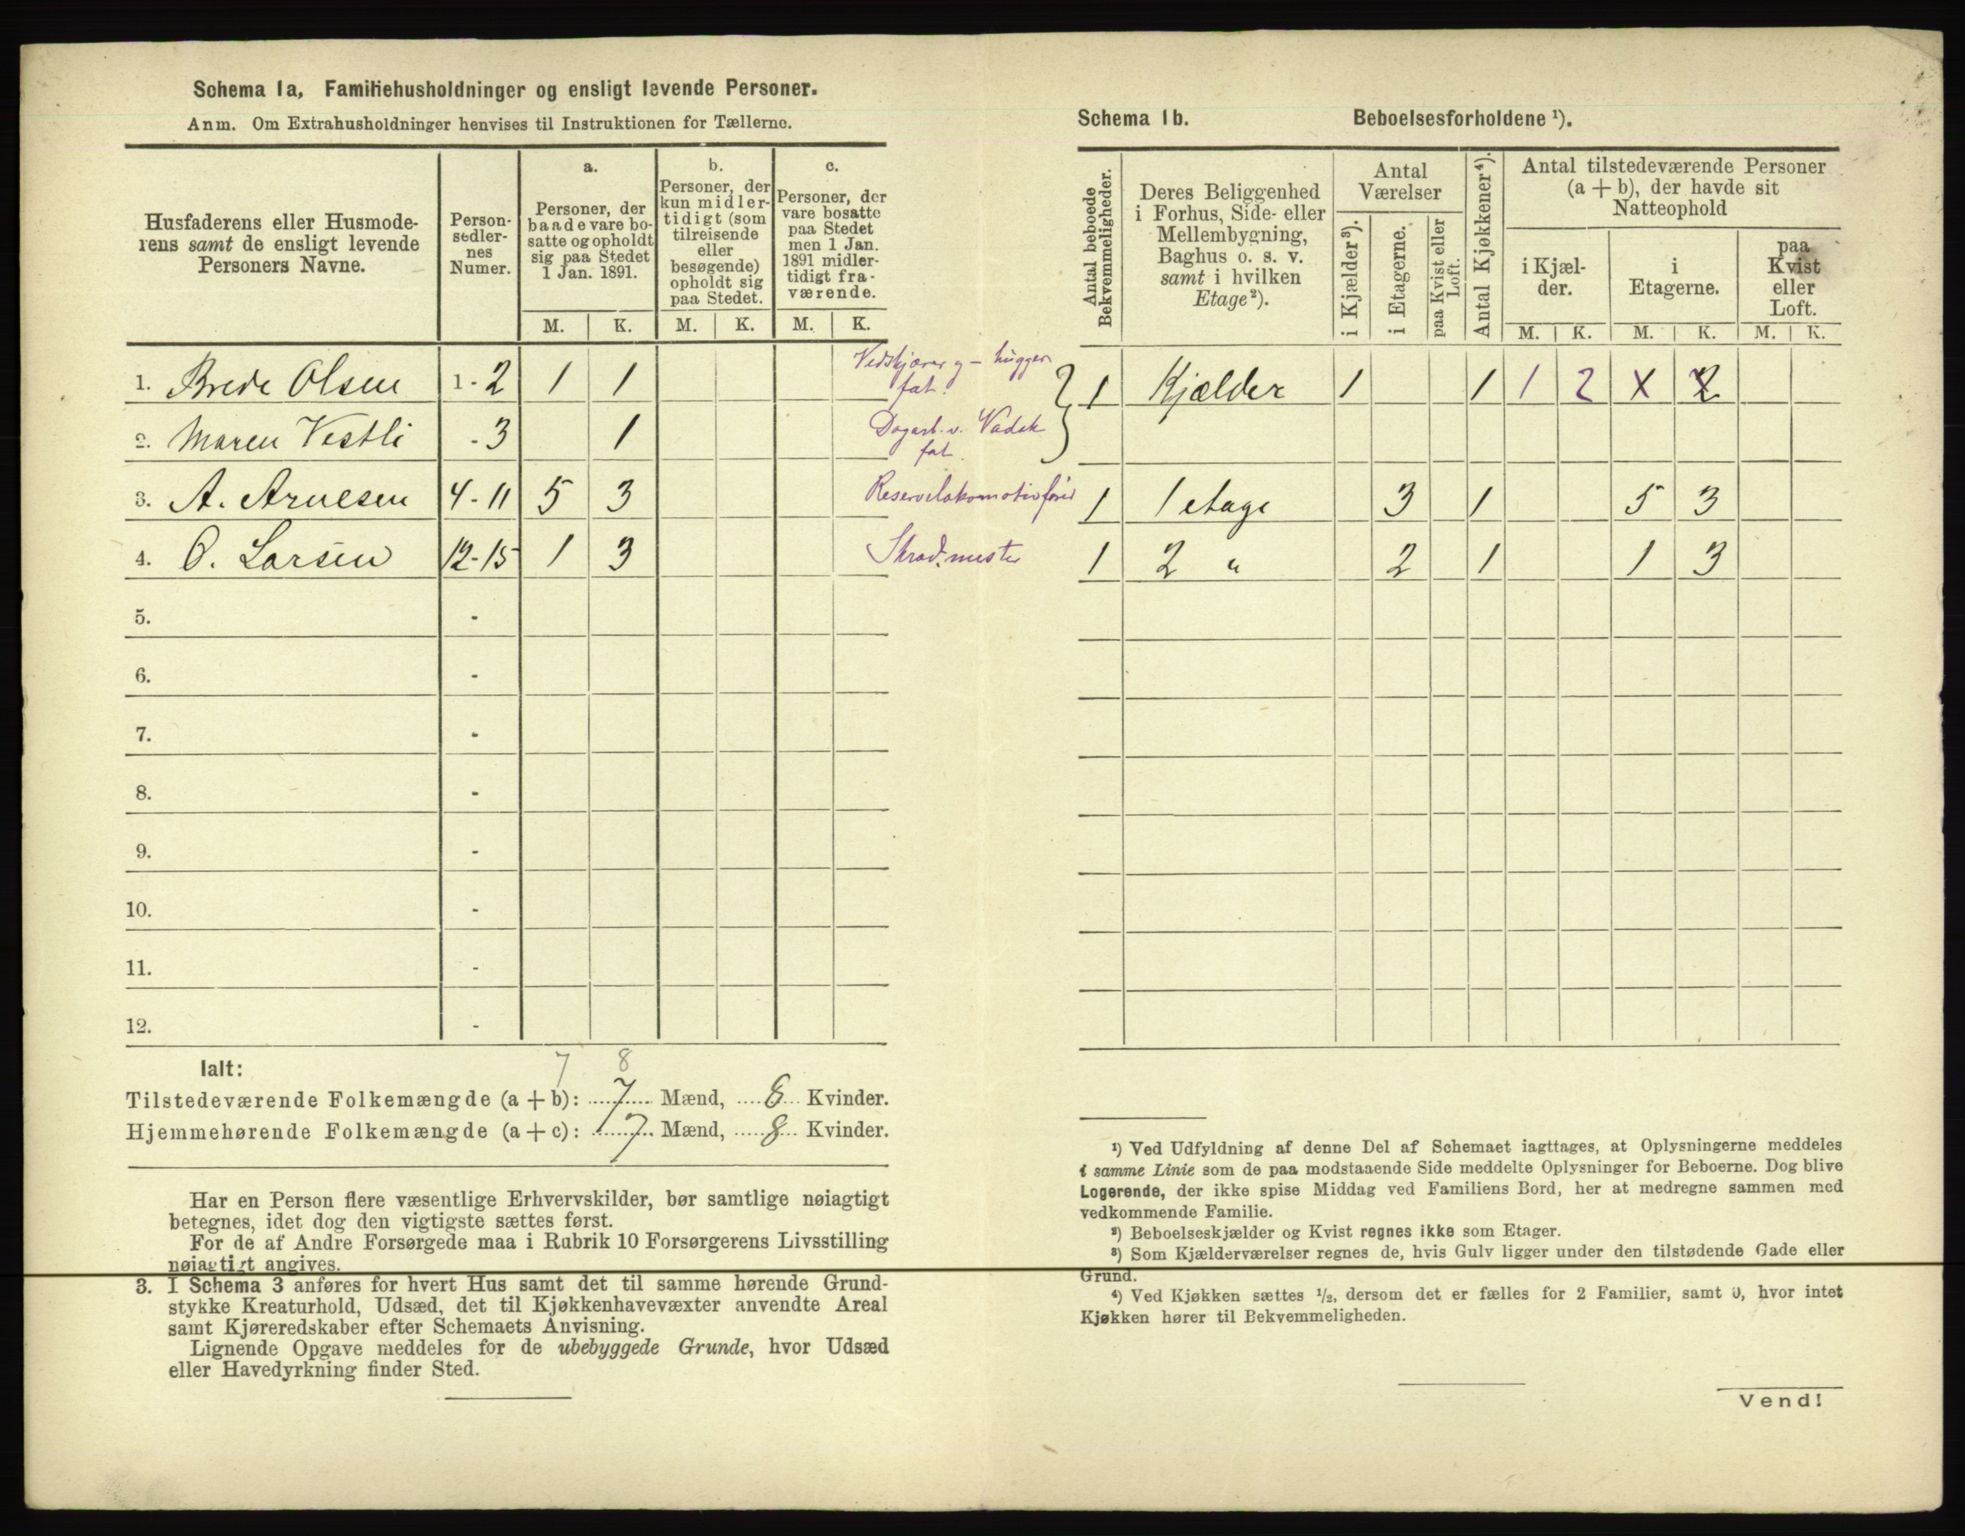 Schema 1a, Familiehusholdninger og ensligt levende Personer.
Anm. Om Extrahusholdninger henvises til Instruktionen for Tællerne.
Husfaderens eller Husmode-
rens samt de ensligt levende
Personers Navne.
Person-
sedler-
nes
Numer.
a.
Personer, der
baade vare bo-
satte og opholdt
sig paa Stedet
1 Jan. 1891.
b.
Personer, der
kun midler-
tidigt (som
tilreisende
eller
besøgende)
opholdt sig
paa Stedet.
c.
Personer, der
vare bosatte
paa Stedet
men 1 Jan.
1891 midler-
tidigt fra-
værende.
M. K. M. K. M. K.
1. Brede Olsen 1 - 2 1 1 Vedskjærer g - hugger
fat.
2. Maren Vestli - 3 1 Dagarb. v. Vadsk
fat.
3. A. Arnesen 4 - 11 5 3 Reservelokomotivfører
4. O. Larsen 12 - 15 1 3 Skræd.mester
5. -
6. -
7. -
8. -
9. -
10. -
11. -
12. -
7 8
Ialt:
Tilstedeværende Folkemængde (a + b): 7 Mænd, 8 Kvinder.
Hjemmehørende Folkemængde (a + c): 7 Mænd, 8 Kvinder.
Har en Person flere væsentlige Erhvervskilder, bør samtlige nøiagtigt
betegnes, idet dog den vigtigste sættes først.
For de af Andre Forsørgede maa i Rubrik 10 Forsørgerens Livsstilling
nøiagtigt angives.
3. I Schema 3 anføres for hvert Hus samt det til samme hørende Grund-
stykke Kreaturhold, Udsæd, det til Kjøkkenhavevæxter anvendte Areal
samt Kjøreredskaber efter Schemaets Anvisning.
Lignende Opgave meddeles for de ubebyggede Grunde, hvor Udsæd
eller Havedyrkning finder Sted.
Schema 1b. Beboelsesforholdene ¹).
Antal beboede
Bekvemmeligheder.
Deres Beliggenhed
i Forhus, Side- eller
Mellembygning,
Baghus o. s. v.
samt i hvilken
Etage²).
Antal
Værelser
i Kjælder³).
i Etagerne.
paa Kvist eller
Loft.
Antal Kjøkkener⁴).
Antal tilstedeværende Personer
(a + b), der havde sit
Natteophold
i Kjæl-
der.
i
Etagerne.
paa
Kvist
eller
Loft.
M. K. M. K. M. K.
1 Kjælder 1 1 1 2 x 2
1 1 etage 3 1 5 3
1 2 " 2 1 1 3
¹) Ved Udfyldning af denne Del af Schemaet iagttages, at Oplysningerne meddeles
i samme Linie som de paa modstaaende Side meddelte Oplysninger for Beboerne. Dog blive
Logerende, der ikke spise Middag ved Familiens Bord, her at medregne sammen med
vedkommende Familie.
²) Beboelseskjælder og Kvist regnes ikke som Etager.
³) Som Kjælderværelser regnes de, hvis Gulv ligger under den tilstødende Gade eller
Grund.
⁴) Ved Kjøkken sættes ¹/₂, dersom det er fælles for 2 Familier, samt 0, hvor intet
Kjøkken hører til Bekvemmeligheden.
Vend!